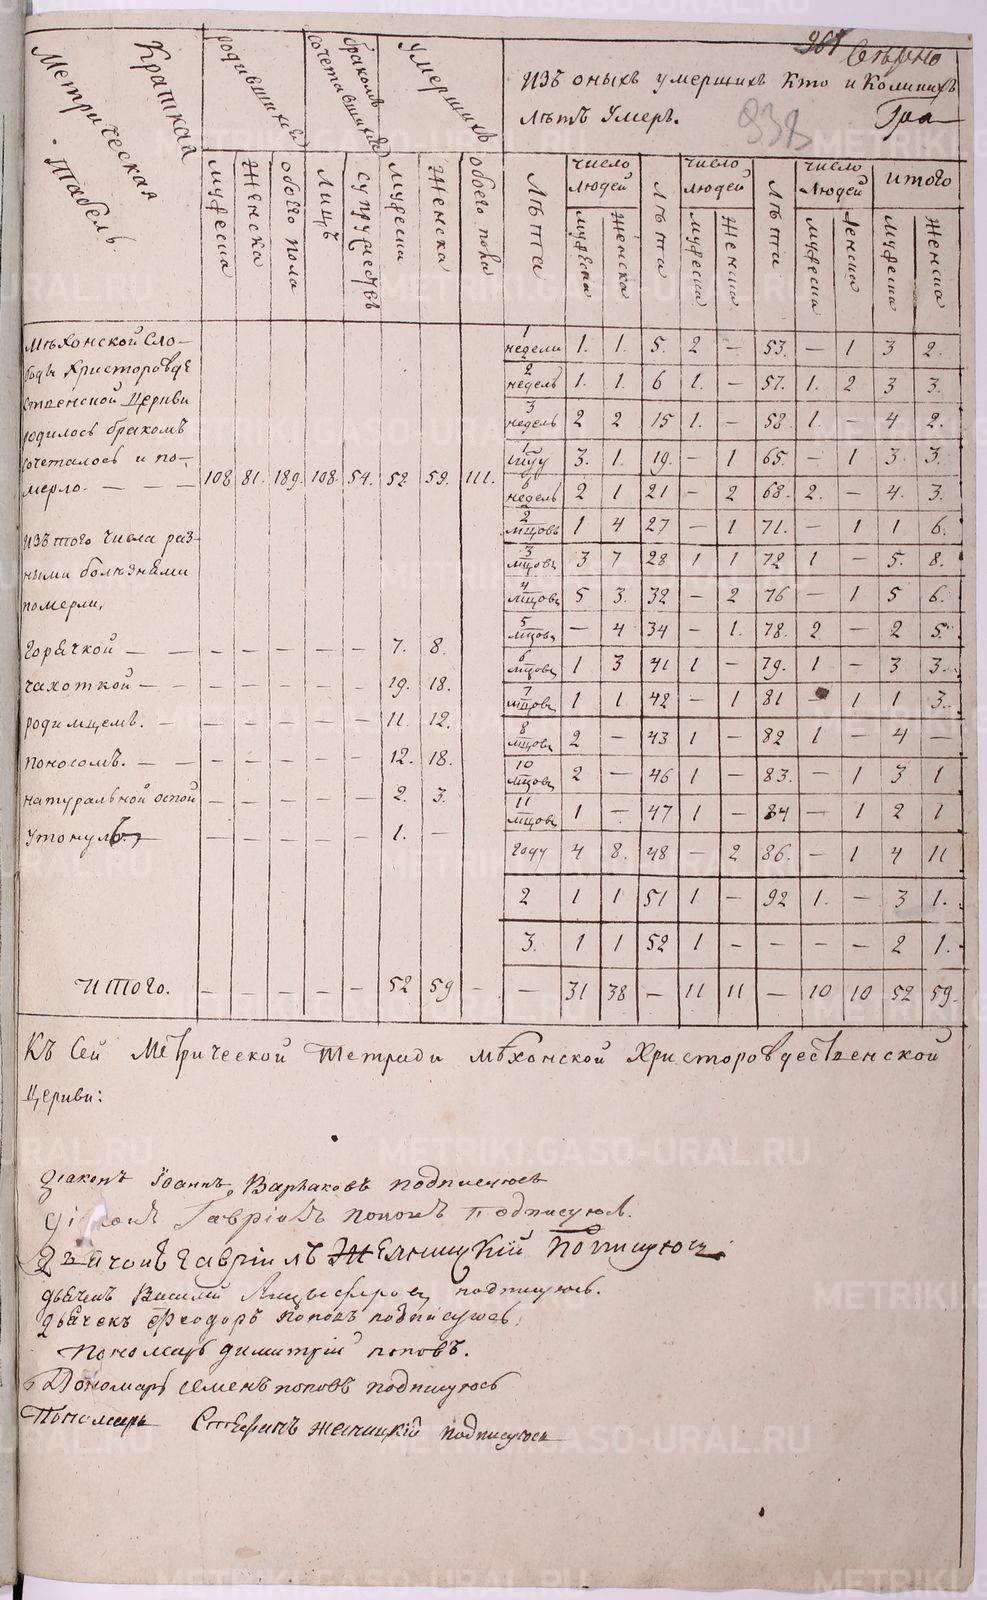 361
938
Краткая
Метрическая
Табель
родившихся
мужеска
Женска
обоего пола
браком
сочетавшихся
Лицъ
супружествъ
Умершихъ
мужеска
Женска
обоего пола
Изъ оныхъ умершихъ кто и Коликихъ
лѣтъ Умеръ.
Лѣта
число людей
мужеска
Женска
Лѣта
число людей
мужеска
Женска
Лѣта
число людей
мужеска
Женска
итого
мужеска
Женска
Мѣхонской Сло-
боды Христорожде
ственской Церкви
родилось бракомъ
сочеталось и по-
мерло. — — — 108. 81. 189. 108. 54. 52 59. 111.
изъ того числа раз-
ными болѣзнями
померли,
горячкой — — — — — — 7. 8.
чахоткой — — — — — — 19. 18.
родимцемъ. — — — — — — 11. 12.
поносомъ. — — — — — — 12. 18.
натуральной оспой — — — — — 2. 3.
утонулъ. — — — — — 1. —
Итого. — — — — — 52 59 —
1 недели 1. 1. 5. 2 — 53. — 1 3 2.
2 недель 1. 1. 6 1. — 57. 1. 2 3 3.
3 недель 2 2 15 1. — 58. 1. — 4 2.
3. 1. 19. — 1 65. — 1 3. 3.
6 недель 2 1 21 — 2 68. 2. — 4. 3.
2 мцовъ 1 4 27 — 1 71. — 1 1 6.
3 мцовъ 3 7 28 1 1 72 1 — 5. 8.
4 мцовъ 5 3. 32 — 2 76 — 1 5 6.
5 мцовъ — 4 34 — 1. 78. 2 — 2 5.
6 мцовъ 1 3 41 1 — 79. 1 — 3 3.
7 мцовъ 1 1 42 — 1 81 1 1 3.
8 мцовъ 2 — 43 1 — 82 1 — 4 —
10 мцовъ 2 — 46 1 — 83. — 1 3 1
11 мцовъ 1 — 47 1 — 84 — 1 2 1
году 4 8. 48 — 2 86. — 1 4 11
2 1 1 51 1 — 92 1. — 3 1.
3. 1 1 52 1 — — — — 2 1.
— 31 38 — 11 11 — 10 10 52 59.
Къ Сей Метрической тетради мѣхонской Христорождественской
Церкви:
диаконъ Іоаннъ Варлаковъ подписуюсь
Гавріилъ Поповъ Подписуюсь.
Гавріилъ Желницкій
дьячекъ Василій подпишуюсь.
дьячекъ Феодоръ Поповъ подписуюсь.
Пономарь димитрій поповъ.
Пономарь семенъ поповъ подпишуюсь
Пономарь Стефанъ желницкій подписуюсь
METRIKI.GASO-URAL.RU